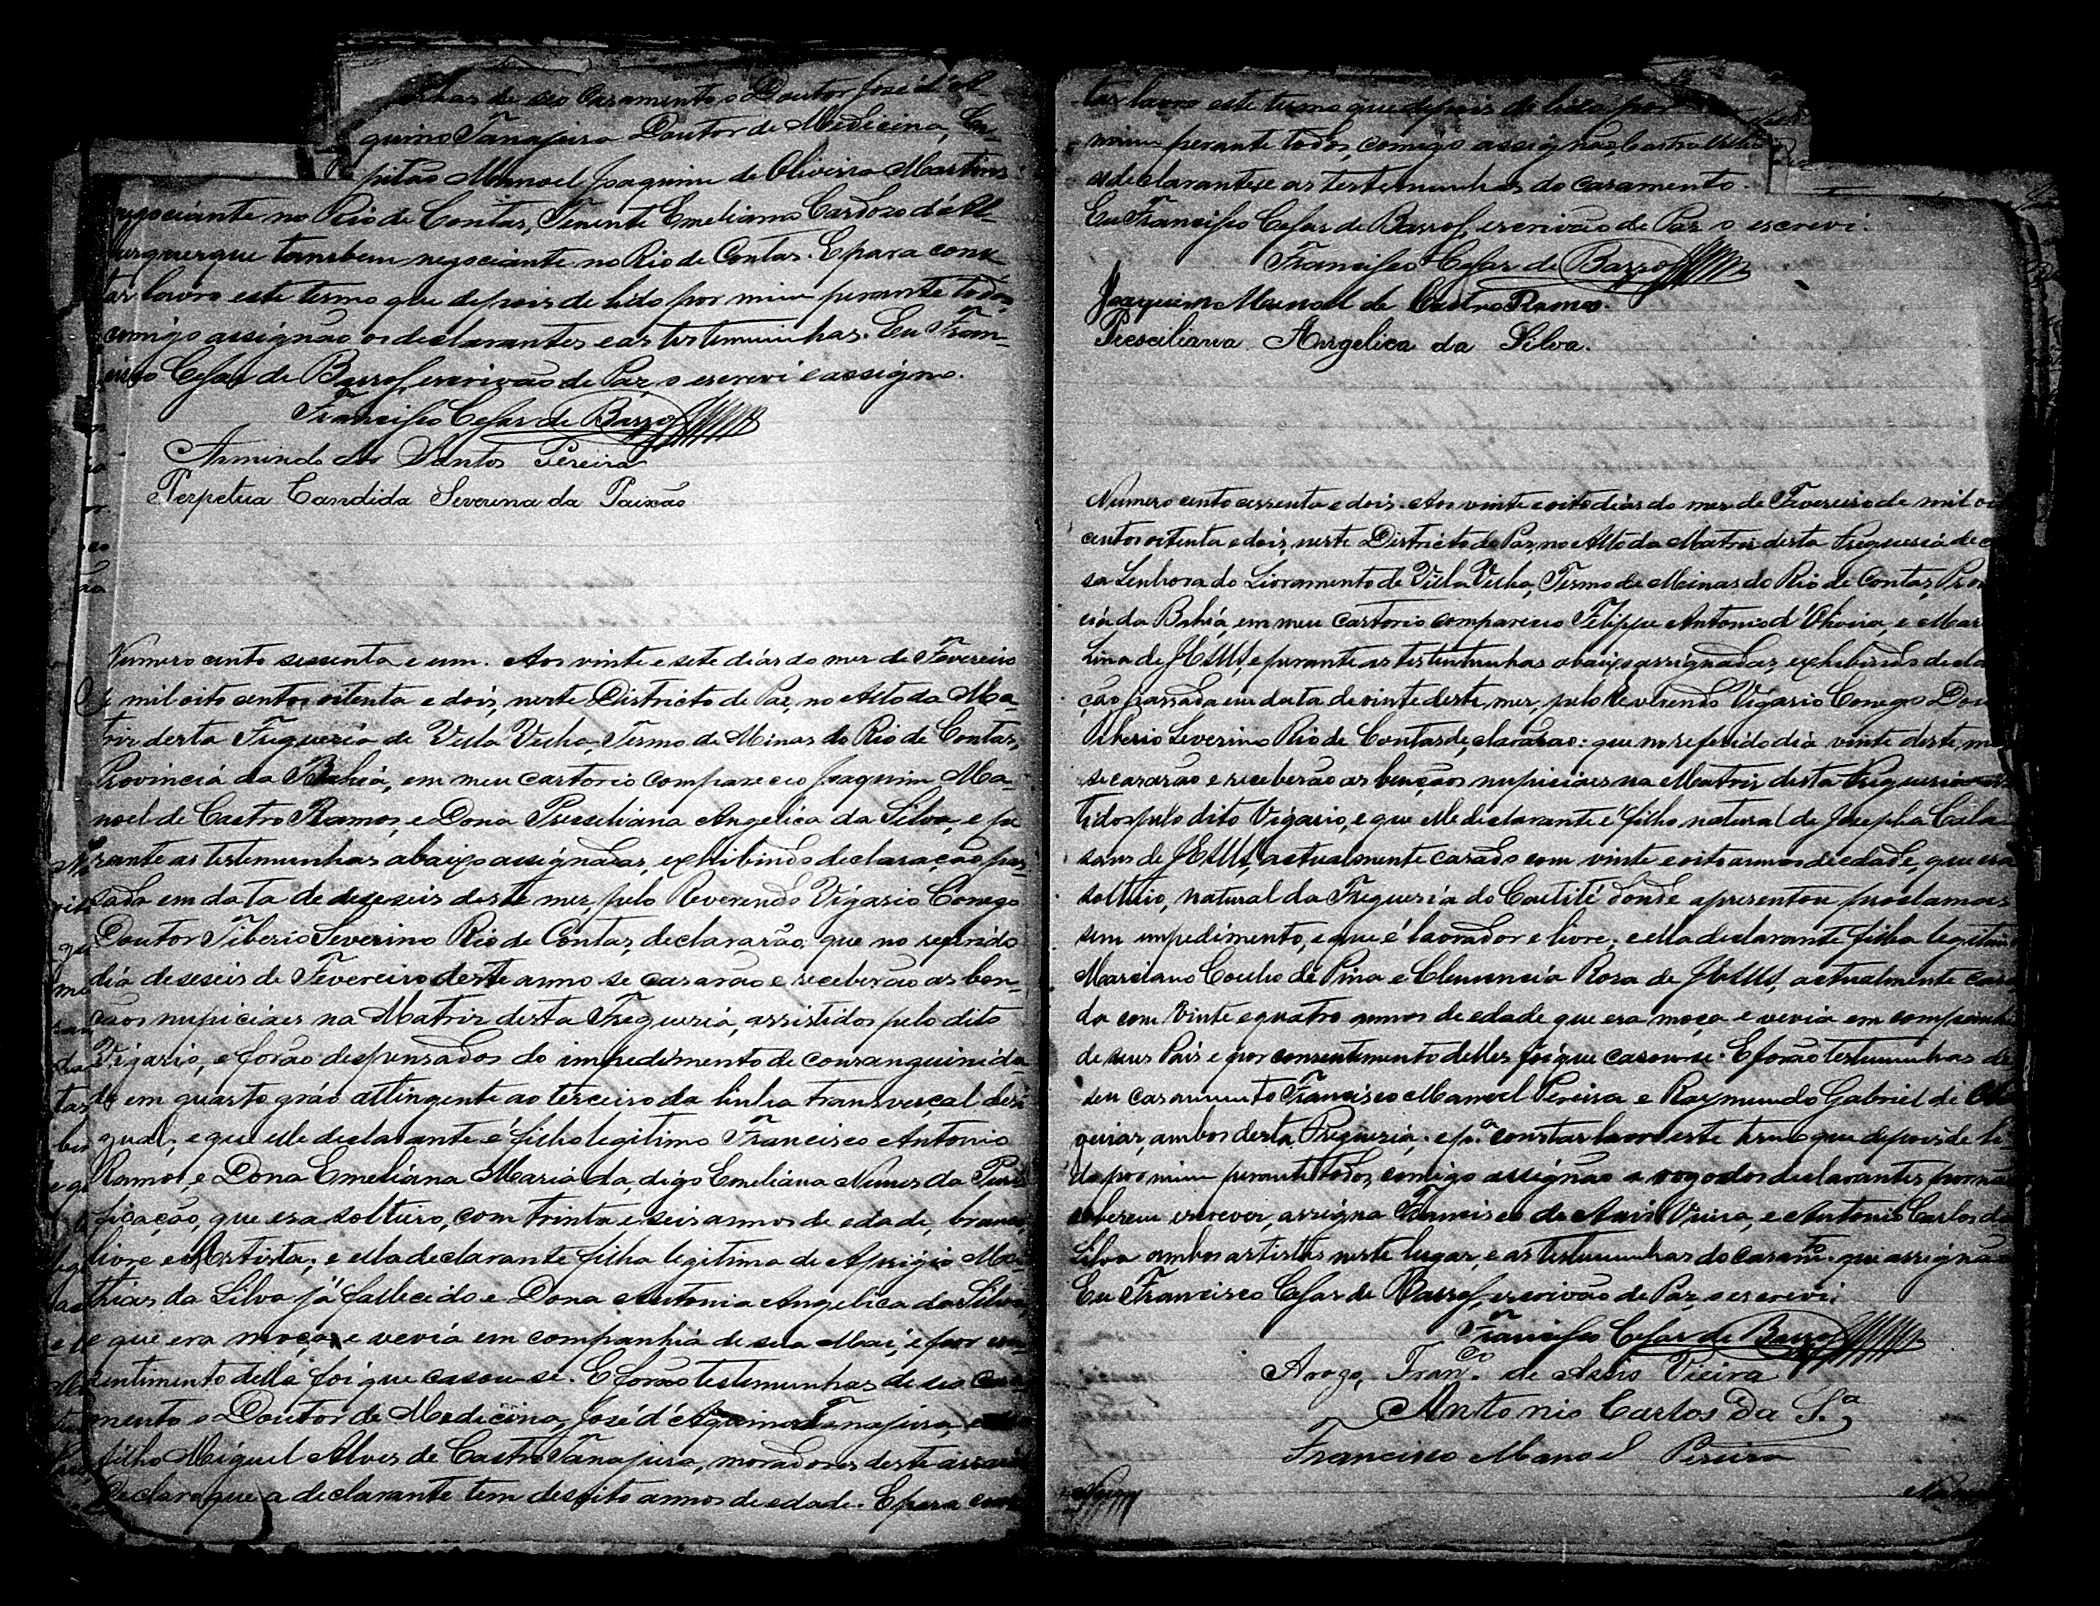 de seo Casamento o Doutor José d'A
quino Tanajura Doutor de Medicina, Ca-
pitão Manoel Joaquim de Oliveira Martins
negociante no Rio de Contas, Tenente Emeliano Cardozo d'Al-
burquerque tambem negociante no Rio de Contas. E para cons-
tar lavro este termo que depois de lido por mim perante todos
comigo assignão os declarantes e as testemunhas. Eu Fran-
cisco Cesar de Barros, escrivão de Paz, o escrevi e assigno.
Francisco Cesar de Barros
Armindo dos Santos Pereira
Perpetua Candida Severina da Paixão
Numero cento sessenta e um. Aos vinte e sete dias do mez de Fevereiro
de mil oito centos oitenta e dois, neste Districto de Paz, no Alto da Ma-
triz desta Freguezia de Villa Velha, Termo de Minas do Rio de Contas,
Provincia da Bahia, em meu cartorio compareceo Joaquim Ma-
noel de Castro Ramos, e Dona Presciliana Angelica da Silva, e pe
rante as testemunhas abaixo assignadas, exhibindo declaração pas-
sada em data de deseseis deste mez, pelo Reverendo Vigario Conego
Doutor Tiberio Severino Rio de Contas, declararão: que no referido
dia deseseis de Fevereiro deste anno se casarão e receberão as ben-
çãos nupiciaes na Matriz desta Freguezia, assistidos pelo dito
Vigario, e forão despensados do impedimento de consanguinida-
de em quarto gráo attingente ao terceiro da linha transverçal desi
gual; e que elle declarante é filho legitimo Francisco Antonio
Ramos, e Dona Emeliana Maria da, digo Emeliana Nunes da Puri
ficação, que era solteiro, com trinta e seis annos de edade, branco,
livre e Artista; e ella declarante filha legitima de Aprigio Ma-
thias da Silva já fallecido e Dona Antonia Angelica da Silva,
e que era moça, e vevia em companhia de sua Mai, e por con-
sentimento della foi que casou-se. E forão testemunhas de seo casa-
mento o Doutor de Medicina, José d'Aquino Tanajura, e
filho Miguel Alves de Castro Tanajura, moradores deste arraial
Declaro que a declarante tem desoito annos de edade. E para cons
tar lavro este termo que depois de lido por
mim perante todos, comigo assignão,
os declarantes e as testemunhas do casamento.
Eu Francisco Cesar de Barros, escrivão de Paz o escrevi.
Francisco Cesar de Barros
Joaquim Manoel de Castro Ramos.
Presciliana Angelica da Silva.
Numero cento cessenta e dois. Aos vinte e oito dias do mez de Fevereiro de mil oi
centos oitenta e dois, neste Districto de Paz, no Alto da Matriz desta Freguezia de
sa Senhora do Livramento de Villa Velha, Termo de Minas do Rio de Contas, Prov
cia da Bahia, em meu cartorio compareceo Felippe Antonio d'Oliveira, e Mar
Lina de JESUS, e perante as testemunhas abaixo assignadas, exhibindo decla
ção passada em data de vinte deste mez, pelo Reverendo Vigario Conego Dou
Tiberio Severino Rio de Contas, declararão: que no referido dia vinte deste mez
se casarão e receberão as bençãos nupiciaes na Matriz desta Freguezia
tidos pelo dito Vigario, e que elle declarante é filho natural de Josepha Cala
sans de JESUS, actualmente casado com vinte e oito annos de edade, que era
solteiro, natural da Freguezia do Caetité donde apresentou proclamas
sem impedimento, e que é lavrador e livre; e ella declarante filha legitima
Marciano Coelho de Pina e Clemencia Rosa de JESUS, actualmente casa
da com vinte e quatro annos de edade que era moça e vevia em companhia
de seus Pais e por consentimento delles foi que casou-se. E forão testemunhas de
seu casamento Francisco Manoel Pereira e Raymundo Gabriel de
queiros, ambos desta Freguezia. e p.ª constar lavro este termo que depois de li-
do por mim perante todos, comigo assignão a rogo dos declarantes por não
saberem escrever, assigna Francisco de Assis Vieira, e Antonio Carlos da
Silva ambos artistas neste lugar, e as testemunhas do casam.to que assignão
Eu Francisco Cesar de Barros, escrivão de Paz, o escrevi.
Francisco Cesar de Barros
Arogo, Fran.co de Assis Vieira
Antonio Carlos da S.ª
Francisco Manoel Pereira